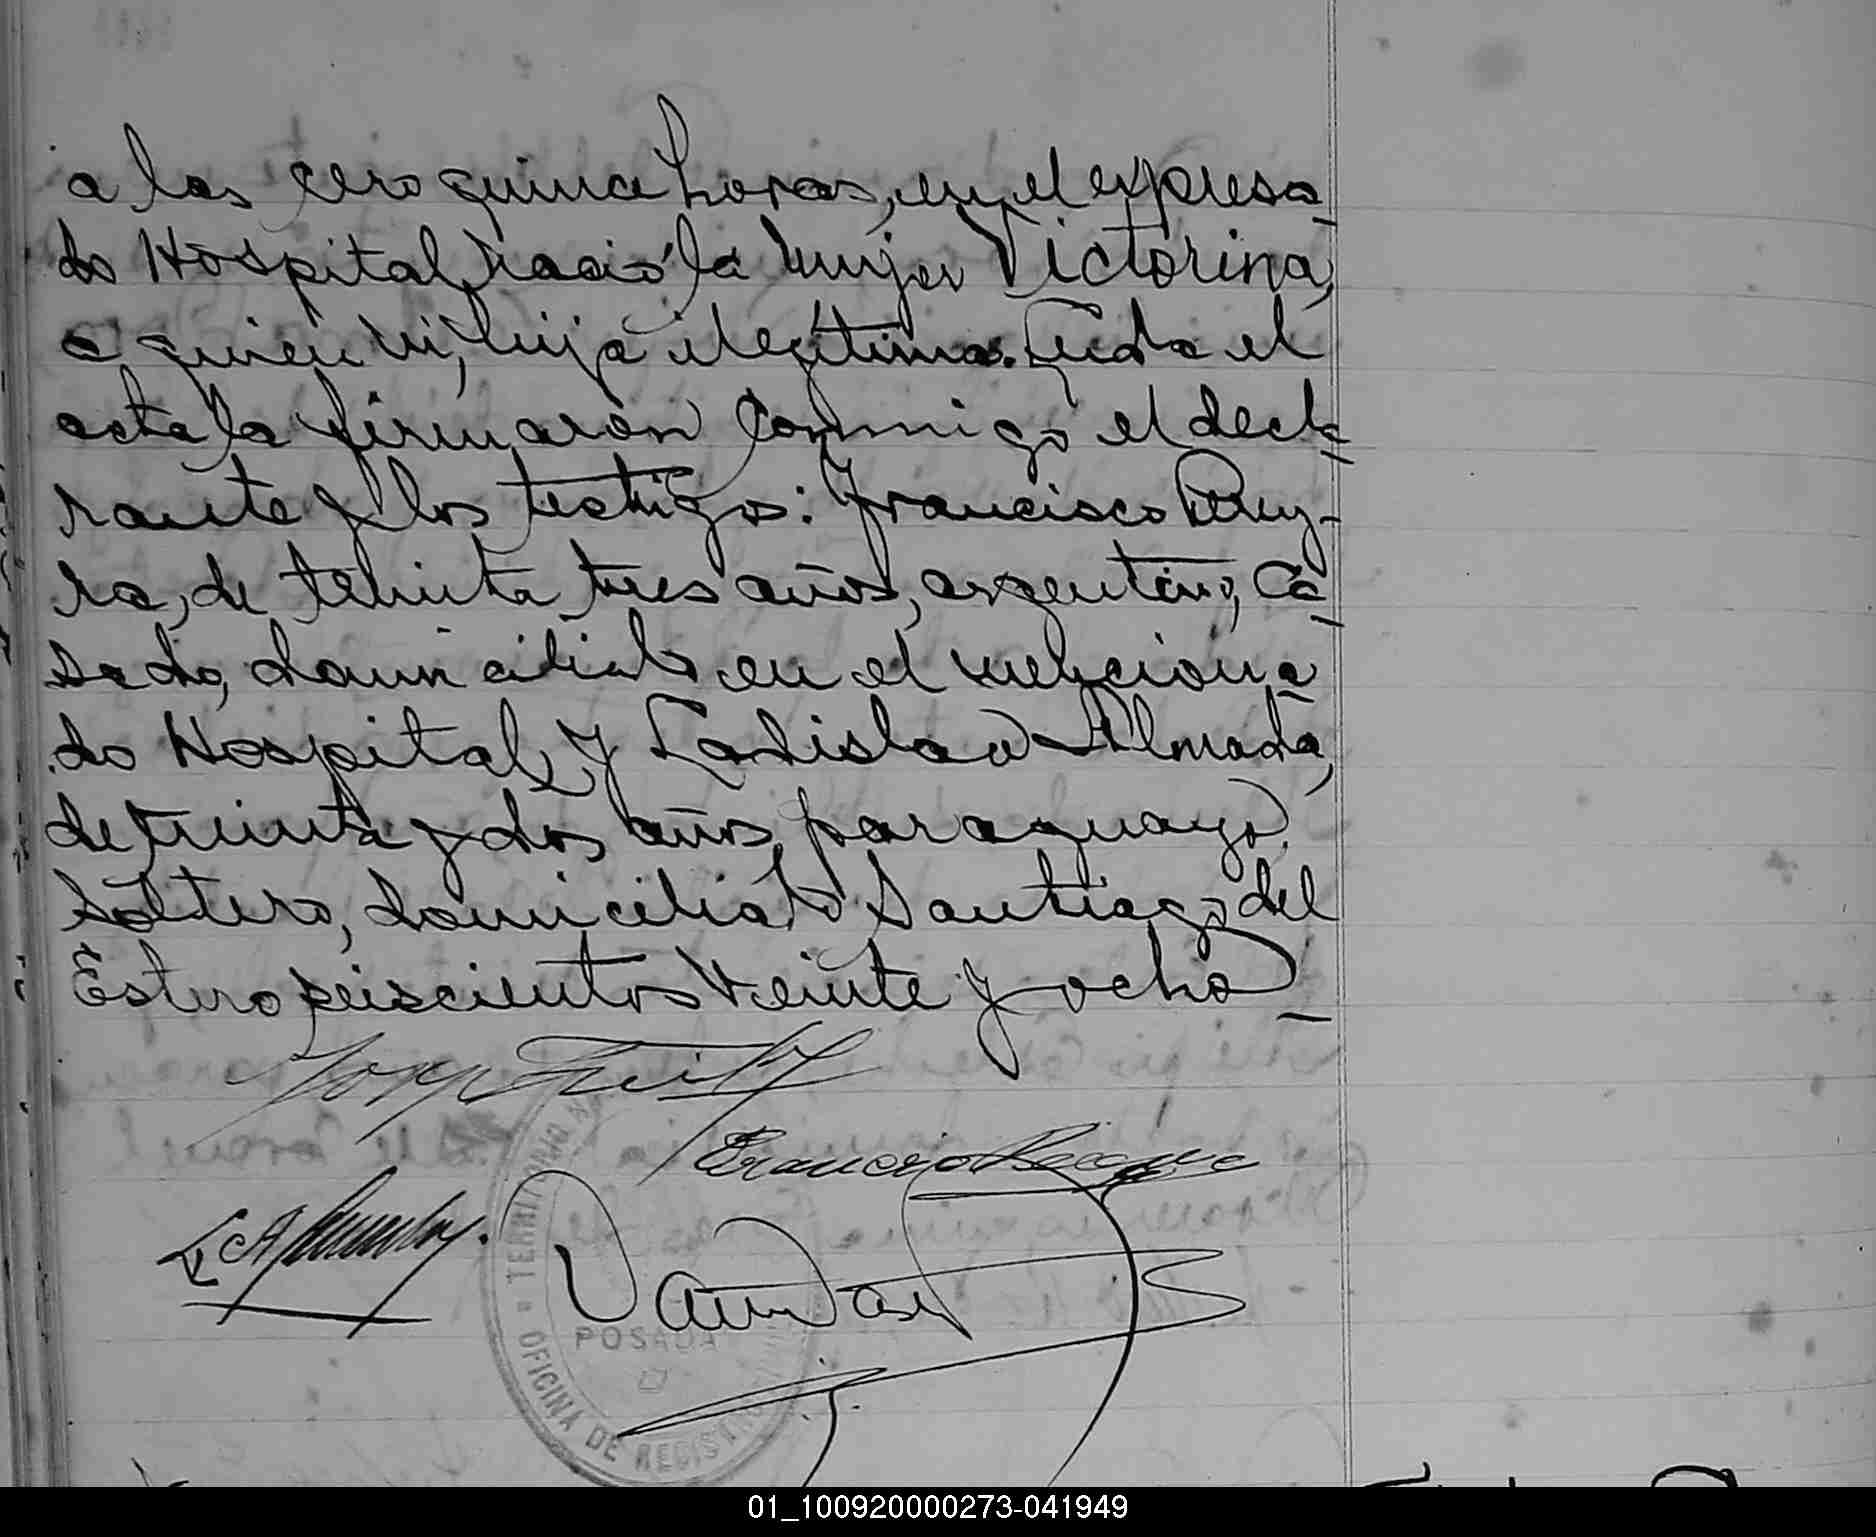 a las cero quince horas, en el expresa-
do Hospital nació la mujer Victorina,
a quien vi, hija ilegítima. Leida el
acta la firmaron conmigo el decla-
rante y los testigos: Francisco Perey-
ra, de treinta tres años, argentino, ca-
sado, domiciliado en el menciona-
do Hospital y Ladislao Almada,
de treinta y dos años, paraguayo,
soltero, domiciliado Santiago del
Estero seiscientos veinte y ocho
Francisco
L A
TERRITORIO NA
POSADA
OFICINA DE REGIST
01_100920000273-041949